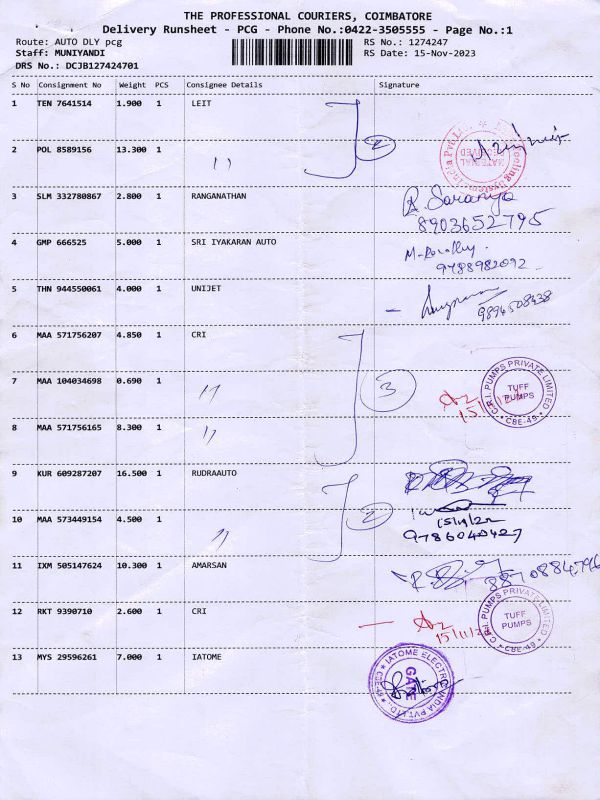 THE PROFESSIONAL COURIERS, COIMBATORE
Delivery Runsheet - PCG - Phone No.:0422-3505555 - Page No.:1
Route: AUTO DLY pcg RS No.: 1274247
Staff: MUNIYANDI RS Date: 15-Nov-2023
DRS No.: DCJB127424701
S No Consignment No Weight PCS Consignee Details Signature
1 TEN 7641514 1.900 1 LEIT
2
2 POL 8589156 13.300 1 "
MATERIAL RECEIVED
3 SLM 332780867 2.800 1 RANGANATHAN R. Saranya
8903652795
4 GMP 666525 5.000 1 SRI IYAKARAN AUTO
9788982092
5 THN 944550061 4.000 1 UNIJET
9894508438
6 MAA 571756207 4.850 1 CRI
7 MAA 104034698 0.690 1 "
3
C.R.I. PUMPS PRIVATE LIMITED
TUFF PUMPS
CBE-49
8 MAA 571756165 8.300 1 "
9 KUR 609287207 16.500 1 RUDRAAUTO
2
10 MAA 573449154 4.500 1 "
9786040427
11 IXM 505147624 10.300 1 AMARSAN
8870884796
12 RKT 9390710 2.600 1 CRI
C.R.I. PUMPS PRIVATE LIMITED
TUFF PUMPS
CBE-49
13 MYS 29596261 7.000 1 IATOME
IATOME ELECTRIC INDIA PVT LTD.
GATE